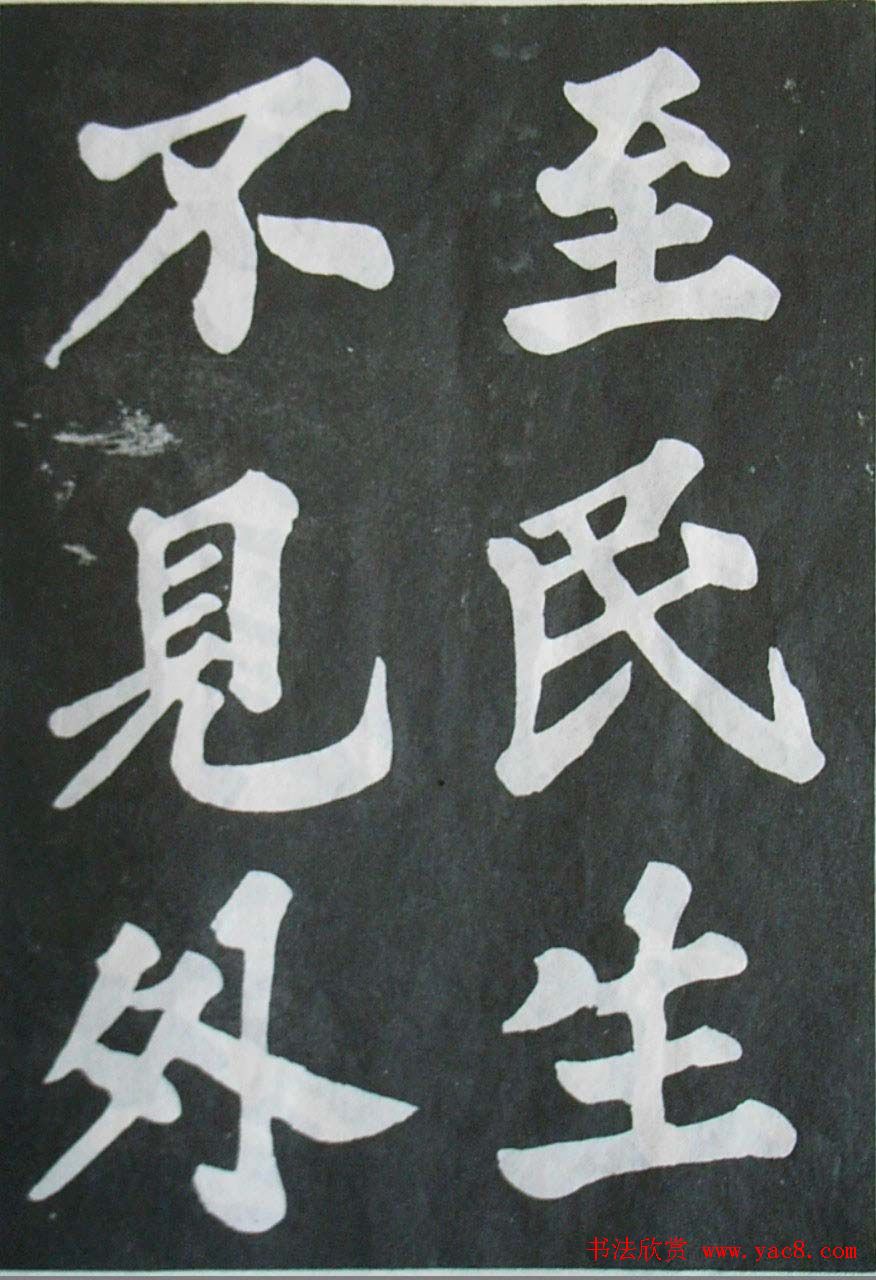 至民生
不見外
书法欣赏 www.yac8.com